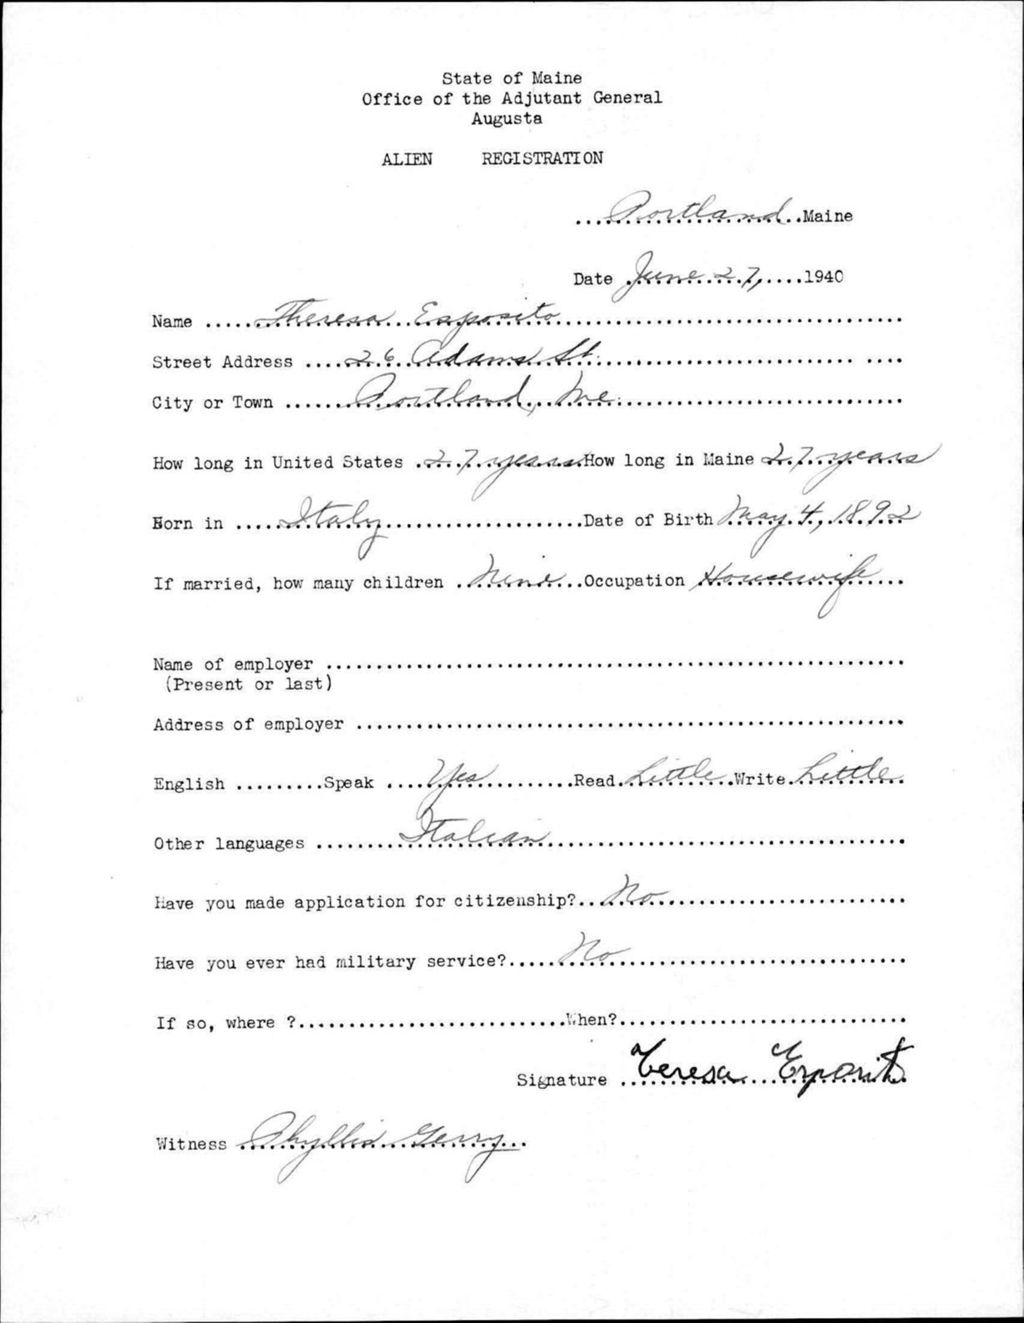 State of Maine
Office of the Adjutant General
Augusta
ALIEN REGISTRATION
Portland Maine
Date June 27, 1940
Name Theresa Esposito
Street Address 26 Adams St.
City or Town Portland, Me.
How long in United States 27 years How long in Maine 27 years
Born in Italy Date of Birth May 4, 1892
If married, how many children Nine Occupation Housewife
Name of employer
(Present or last)
Address of employer
English Speak Yes Read Little Write Little
Other languages Italian
Have you made application for citizenship? No
Have you ever had military service? No
If so, where ? When?
Signature Teresa Esposito
Witness Phyllis Gerry